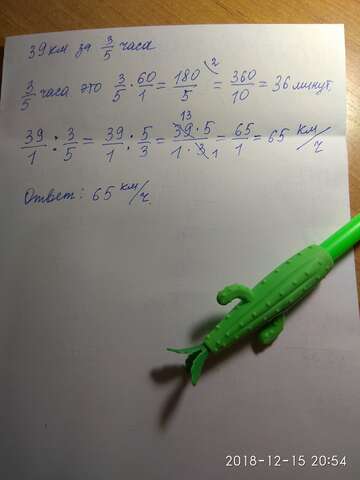 39 км за 3/5 часа
3/5 часа это 3/5 · 60/1 = 180/5 ⁽² = 360/10 = 36 минут,
39/1 : 3/5 = 39/1 · 5/3 = 13 39·5/1·3 1 = 65/1 = 65 км/ч
Ответ: 65 км/ч.
2018-12-15 20:54